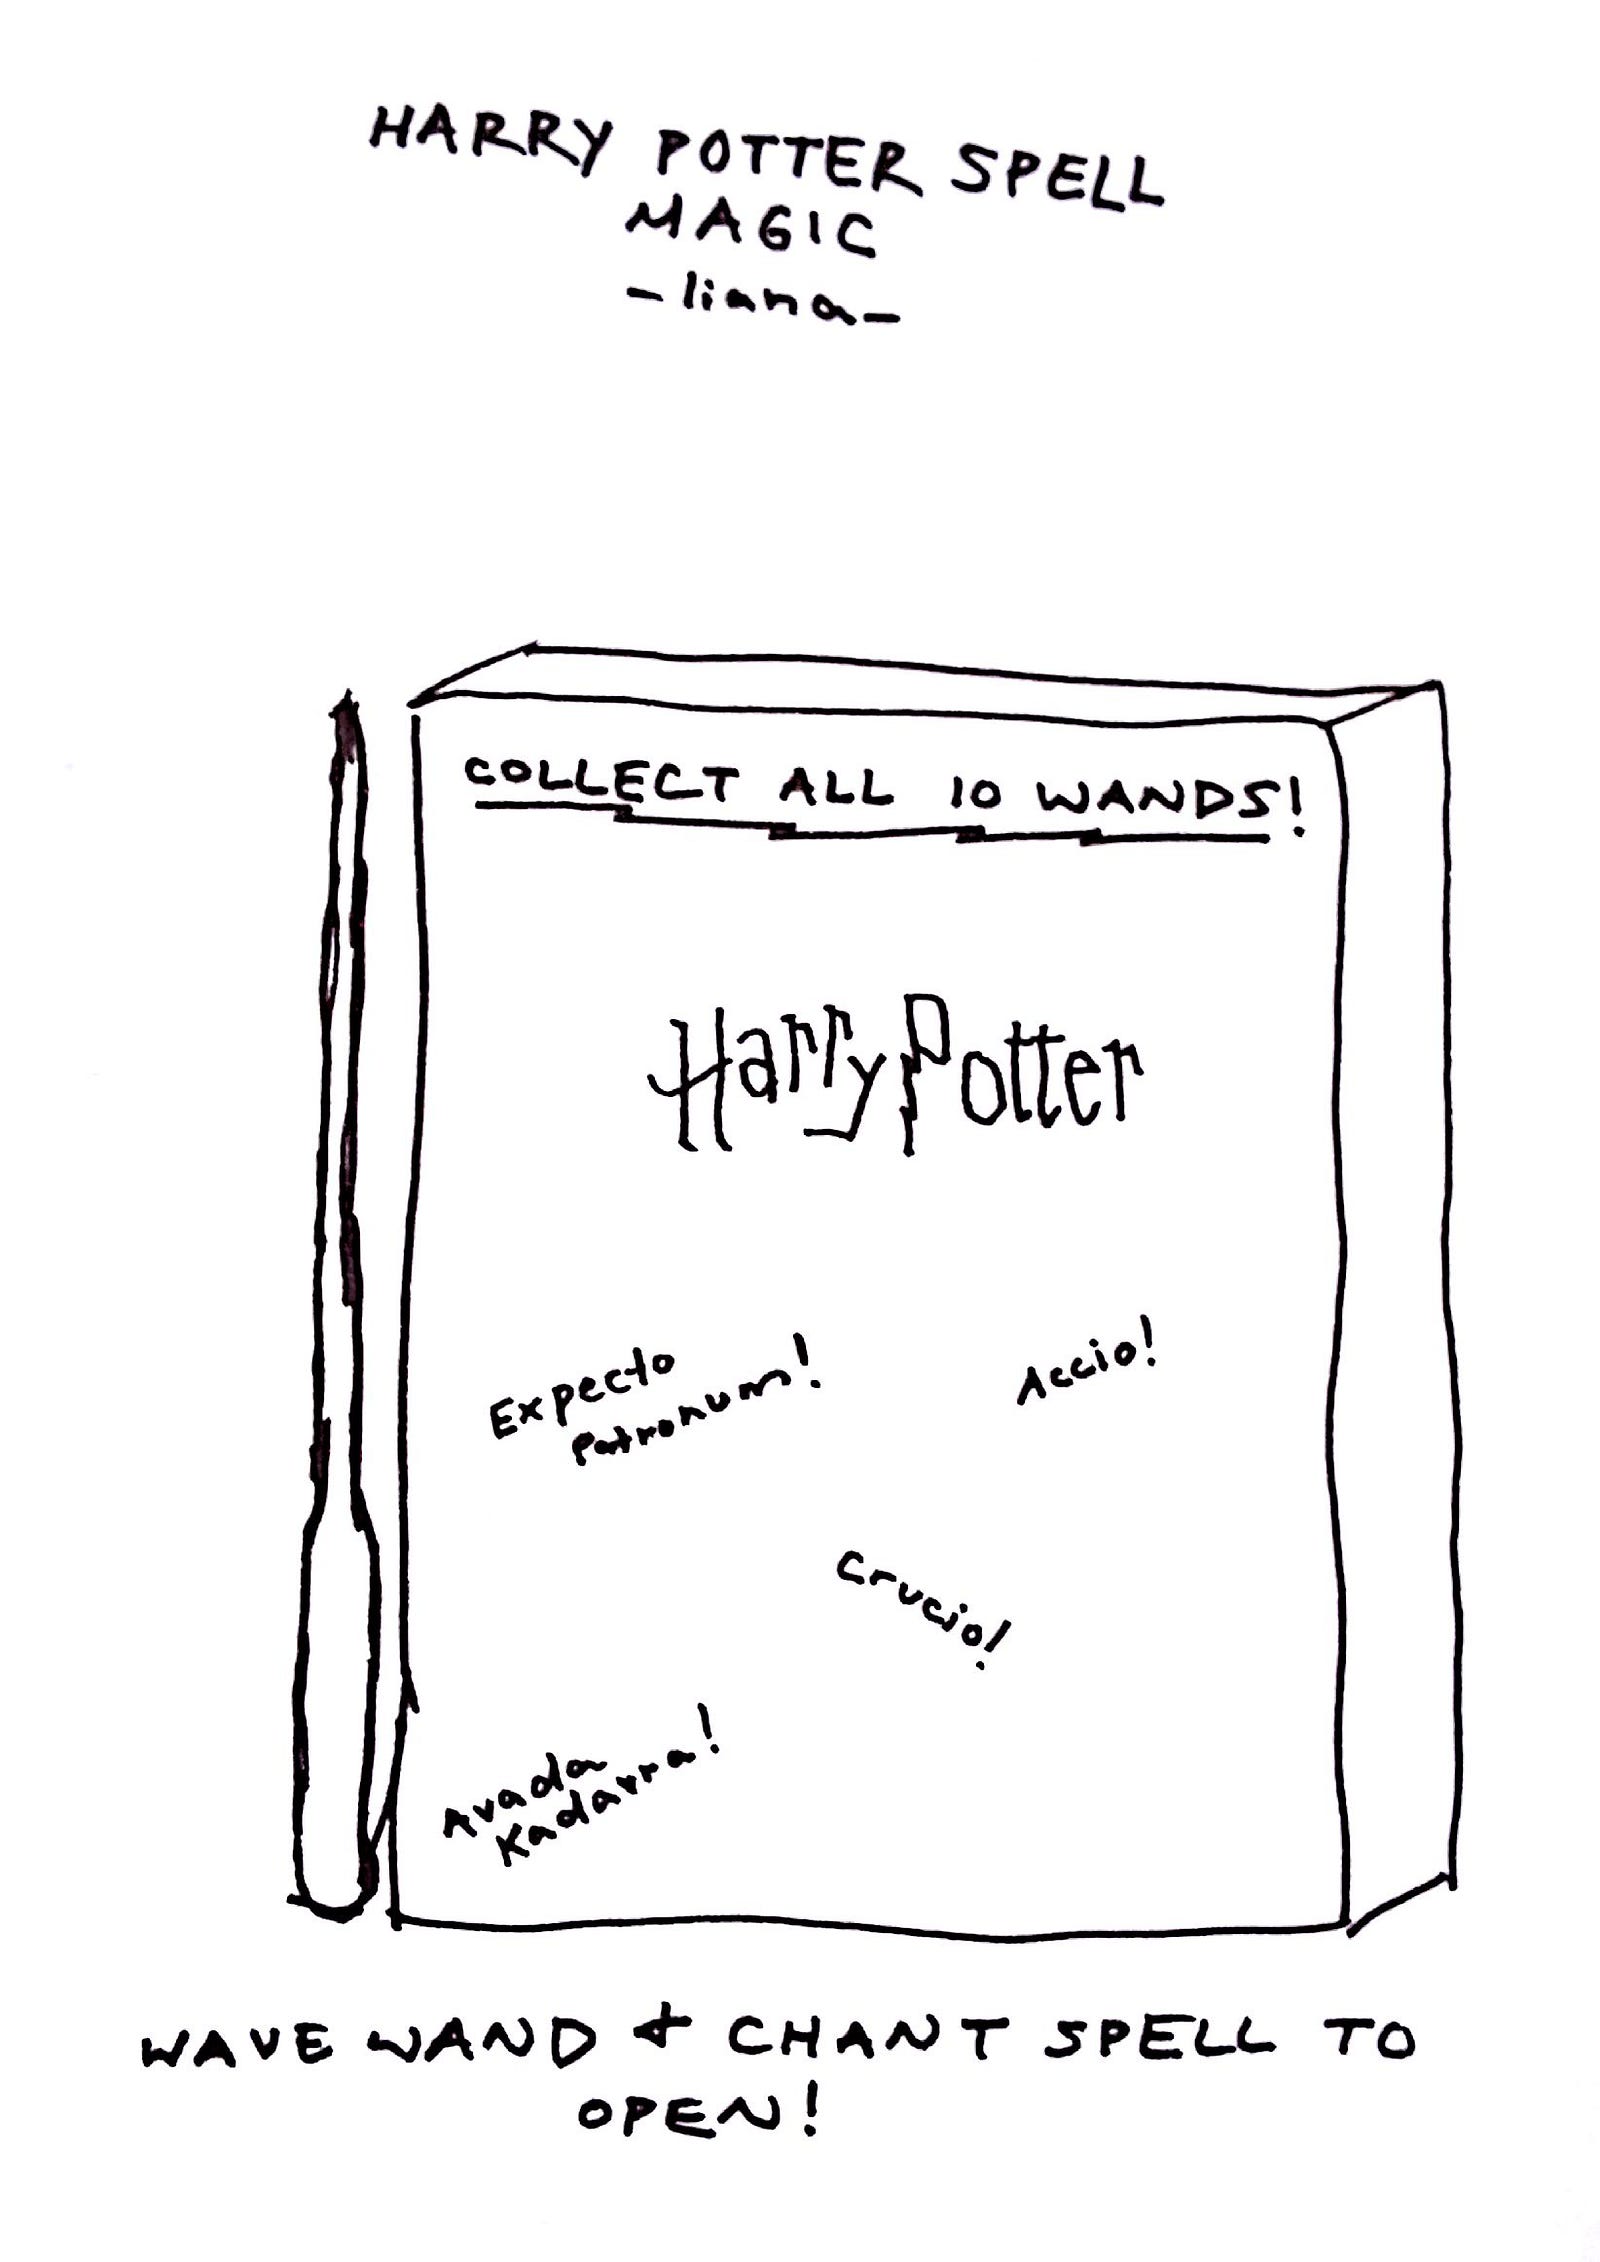 HARRY POTTER SPELL
MAGIC
-liana-
COLLECT ALL 10 WANDS!
Harry Potter
Expecto
Patronum!
Accio!
Crucio!
Avada
Kadavra!
WAVE WAND & CHANT SPELL TO
OPEN!